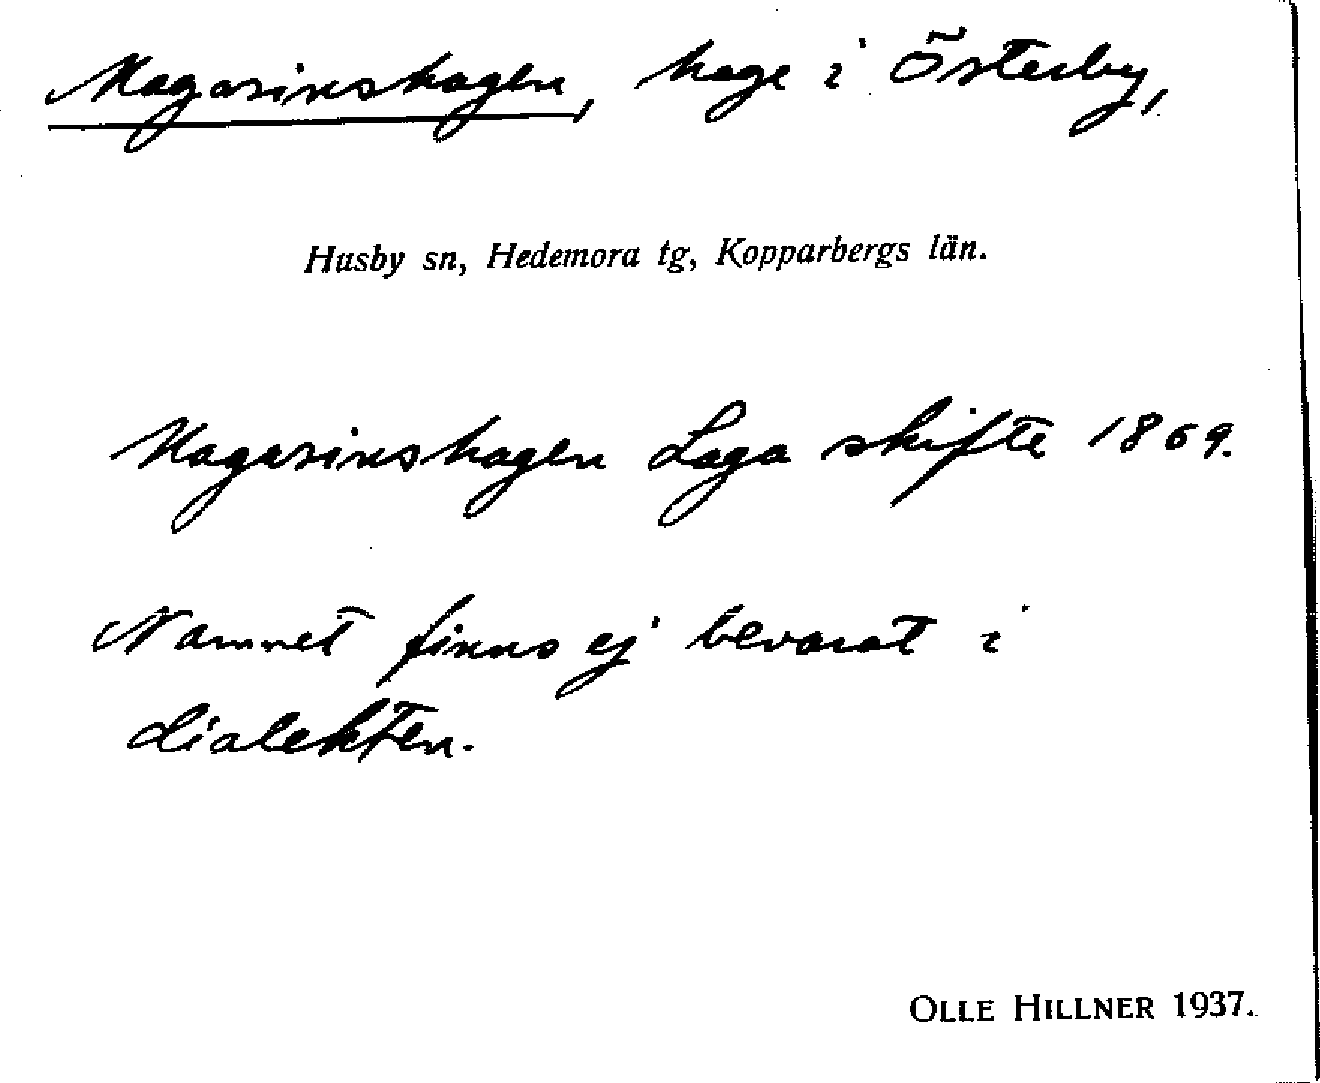 Magasinshagen, hage i Österby,
Husby sn, Hedemora tg, Kopparbergs län.
Magasinshagen Laga skifte 1869.
Namnet finns ej bevarat i
dialekten.
OLLE HILLNER 1937.